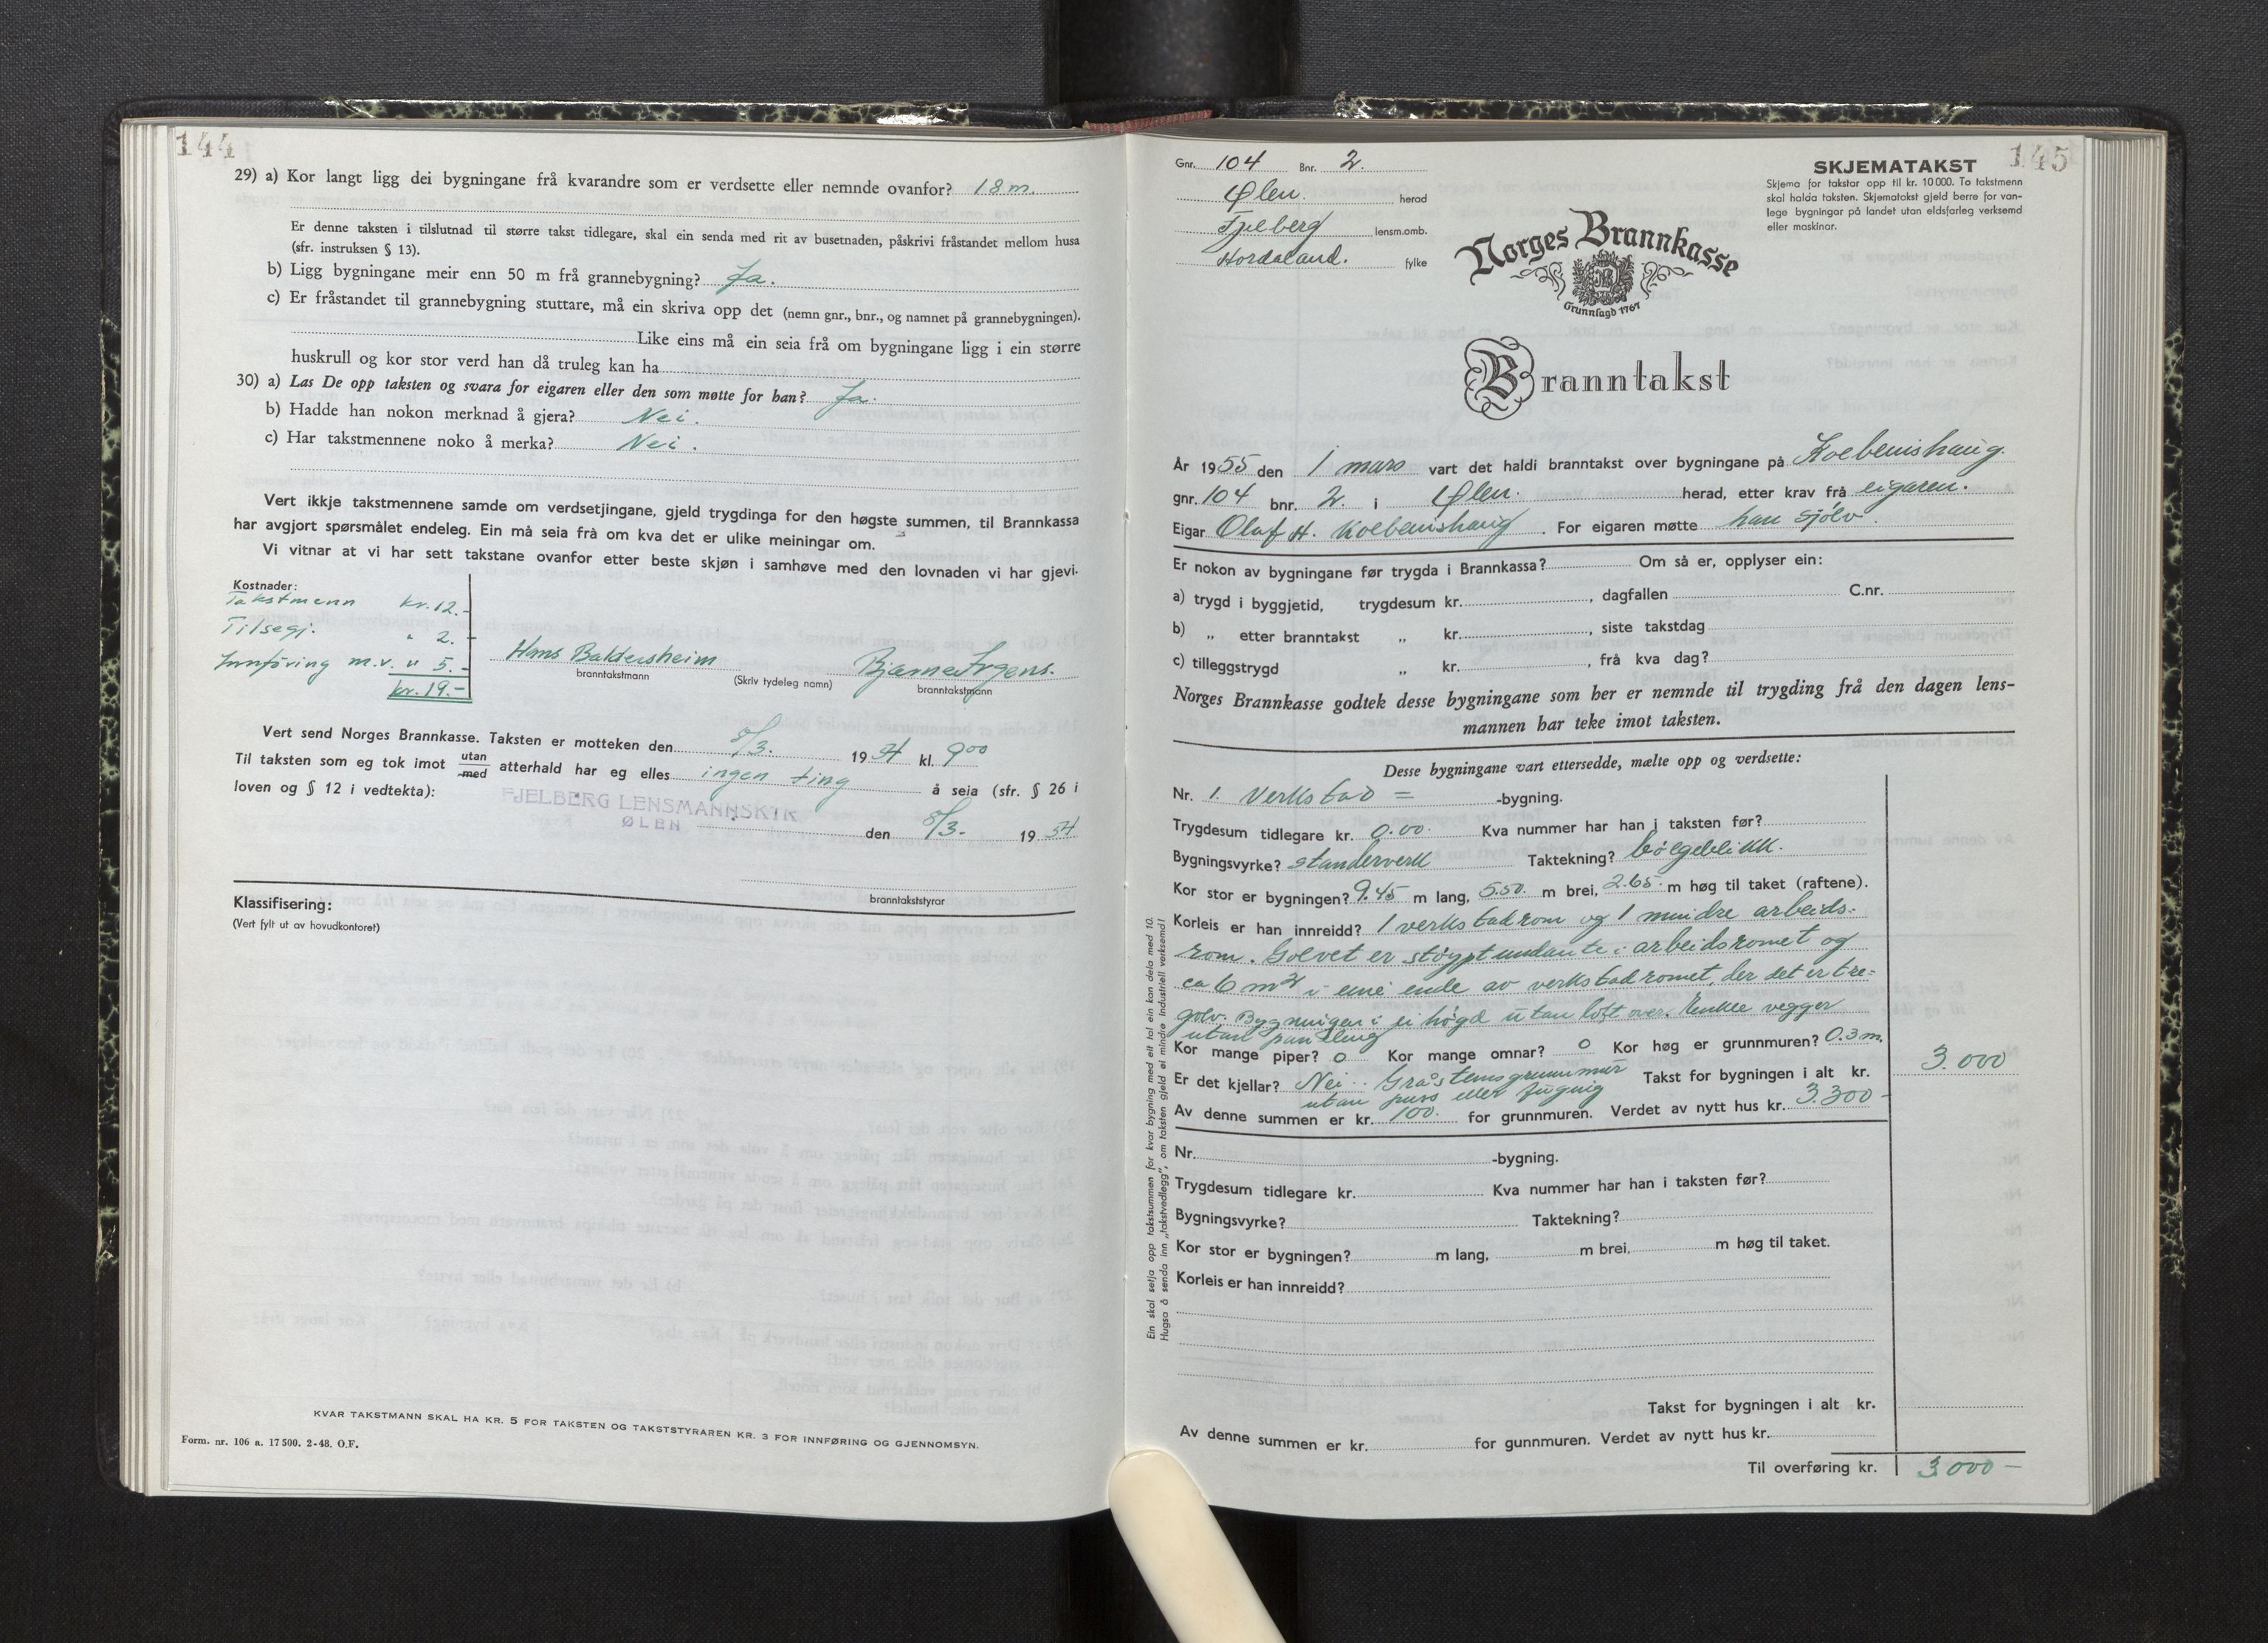 144
29) a) Kor langt ligg dei bygningane frå kvarandre som er verdsette eller nemnde ovanfor? 18 m.
Er denne taksten i tilslutnad til større takst tidlegare, skal ein senda med rit av busetnaden, påskrivi fråstandet mellom husa
(sfr. instruksen § 13).
b) Ligg bygningane meir enn 50 m frå grannebygning? Ja.
c) Er fråstandet til grannebygning stuttare, må ein skriva opp det (nemn gnr., bnr., og namnet på grannebygningen).
Like eins må ein seia frå om bygningane ligg i ein større
huskrull og kor stor verd han då truleg kan ha
30) a) Las De opp taksten og svara for eigaren eller den som møtte for han? Ja.
b) Hadde han nokon merknad å gjera? Nei.
c) Har takstmennene noko å merka? Nei.
Vert ikkje takstmennene samde om verdsetjingane, gjeld trygdinga for den høgste summen, til Brannkassa
har avgjort spørsmålet endeleg. Ein må seia frå om kva det er ulike meiningar om.
Vi vitnar at vi har sett takstane ovanfor etter beste skjøn i samhøve med den lovnaden vi har gjevi.
Kostnader:
Takstmenn kr. 12.-
Tilsegj. " 2.-
Innføring m.v. " 5.-
kr. 19.-
Hans Baldersheim Bjarne Irgens.
branntakstmann (Skriv tydeleg namn) branntakstmann
Vert send Norges Brannkasse. Taksten er motteken den 8/3. 1954 kl. 9 00
Til taksten som eg tok imot utan/med atterhald har eg elles ingen ting å seia (sfr. § 26 i
loven og § 12 i vedtekta):
FJELBERG LENSMANNSKTR
ØLEN
den 8/3. 1954
branntakststyrar
Klassifisering:
(Vert fylt ut av hovudkontoret)
KVAR TAKSTMANN SKAL HA KR. 5 FOR TAKSTEN OG TAKSTSTYRAREN KR. 3 FOR INNFØRING OG GJENNOMSYN.
Form. nr. 106 a. 17500. 2-48. O.F.
145
Gnr. 104 Bnr. 2.
Ølen herad
Fjelberg lensm.omb.
Hordaland. fylke
SKJEMATAKST
Skjema for takstar opp til kr. 10 000. To takstmenn
skal halda taksten. Skjematakst gjeld berre for van-
lege bygningar på landet utan eldsfarleg verksemd
eller maskinar.
Norges Brannkasse
Grunnlagd 1767
Branntakst
År 1955 den 1 mars vart det haldi branntakst over bygningane på Kolbeinshaug.
gnr. 104 bnr. 2. i Ølen. herad, etter krav frå eigaren.
Eigar Olaf H. Kolbeinshaug. For eigaren møtte han sjølv.
Er nokon av bygningane før trygda i Brannkassa? Om så er, opplyser ein:
a) trygd i byggjetid, trygdesum kr. , dagfallen C.nr.
b) „ etter branntakst „ kr. , siste takstdag
c) tilleggstrygd „ kr. , frå kva dag?
Norges Brannkasse godtek desse bygningane som her er nemnde til trygding frå den dagen lens-
mannen har teke imot taksten.
Desse bygningane vart ettersedde, mælte opp og verdsette:
Nr. 1. Verkstad = -bygning.
Trygdesum tidlegare kr. 0.00. Kva nummer har han i taksten før?
Bygningsvyrke? standerverk Taktekning? bølgeblikk.
Kor stor er bygningen? 9.45 m lang, 5.50. m brei, 2.65. m høg til taket (raftene).
Korleis er han innreidd? 1 verkstadrom og 1 mindre arbeids-
rom. Golvet er støypt undante i arbeidsromet og
ca 6 m2 i eine ende av verkstadromet, der det er tre=
golv. Bygningen i ei høgd utan loft over. Enkle vegger
utan panelling
Kor mange piper? 0 Kor mange omnar? 0 Kor høg er grunnmuren? 0.3 m.
Er det kjellar? Nei. Gråsteinsgrunnmur Takst for bygningen i alt kr. 3.000
utan puss eller fuging
Av denne summen er kr. 100. for grunnmuren. Verdet av nytt hus kr. 3.300-
Nr. -bygning.
Trygdesum tidlegare kr. Kva nummer har han i taksten før?
Bygningsvyrke? Taktekning?
Kor stor er bygningen? m lang, m brei, m høg til taket.
Korleis er han innreidd?
Takst for bygningen i alt kr.
Av denne summen er kr. for gunnmuren. Verdet av nytt hus kr.
Til overføring kr. 3.000-
Ein skal setja opp takstsummen for kvar bygning med eit tal ein kan dela med 10.
Hugsa å senda inn „takstvedlegg”, om taksten gjeld ei mindre industriell verksemd!